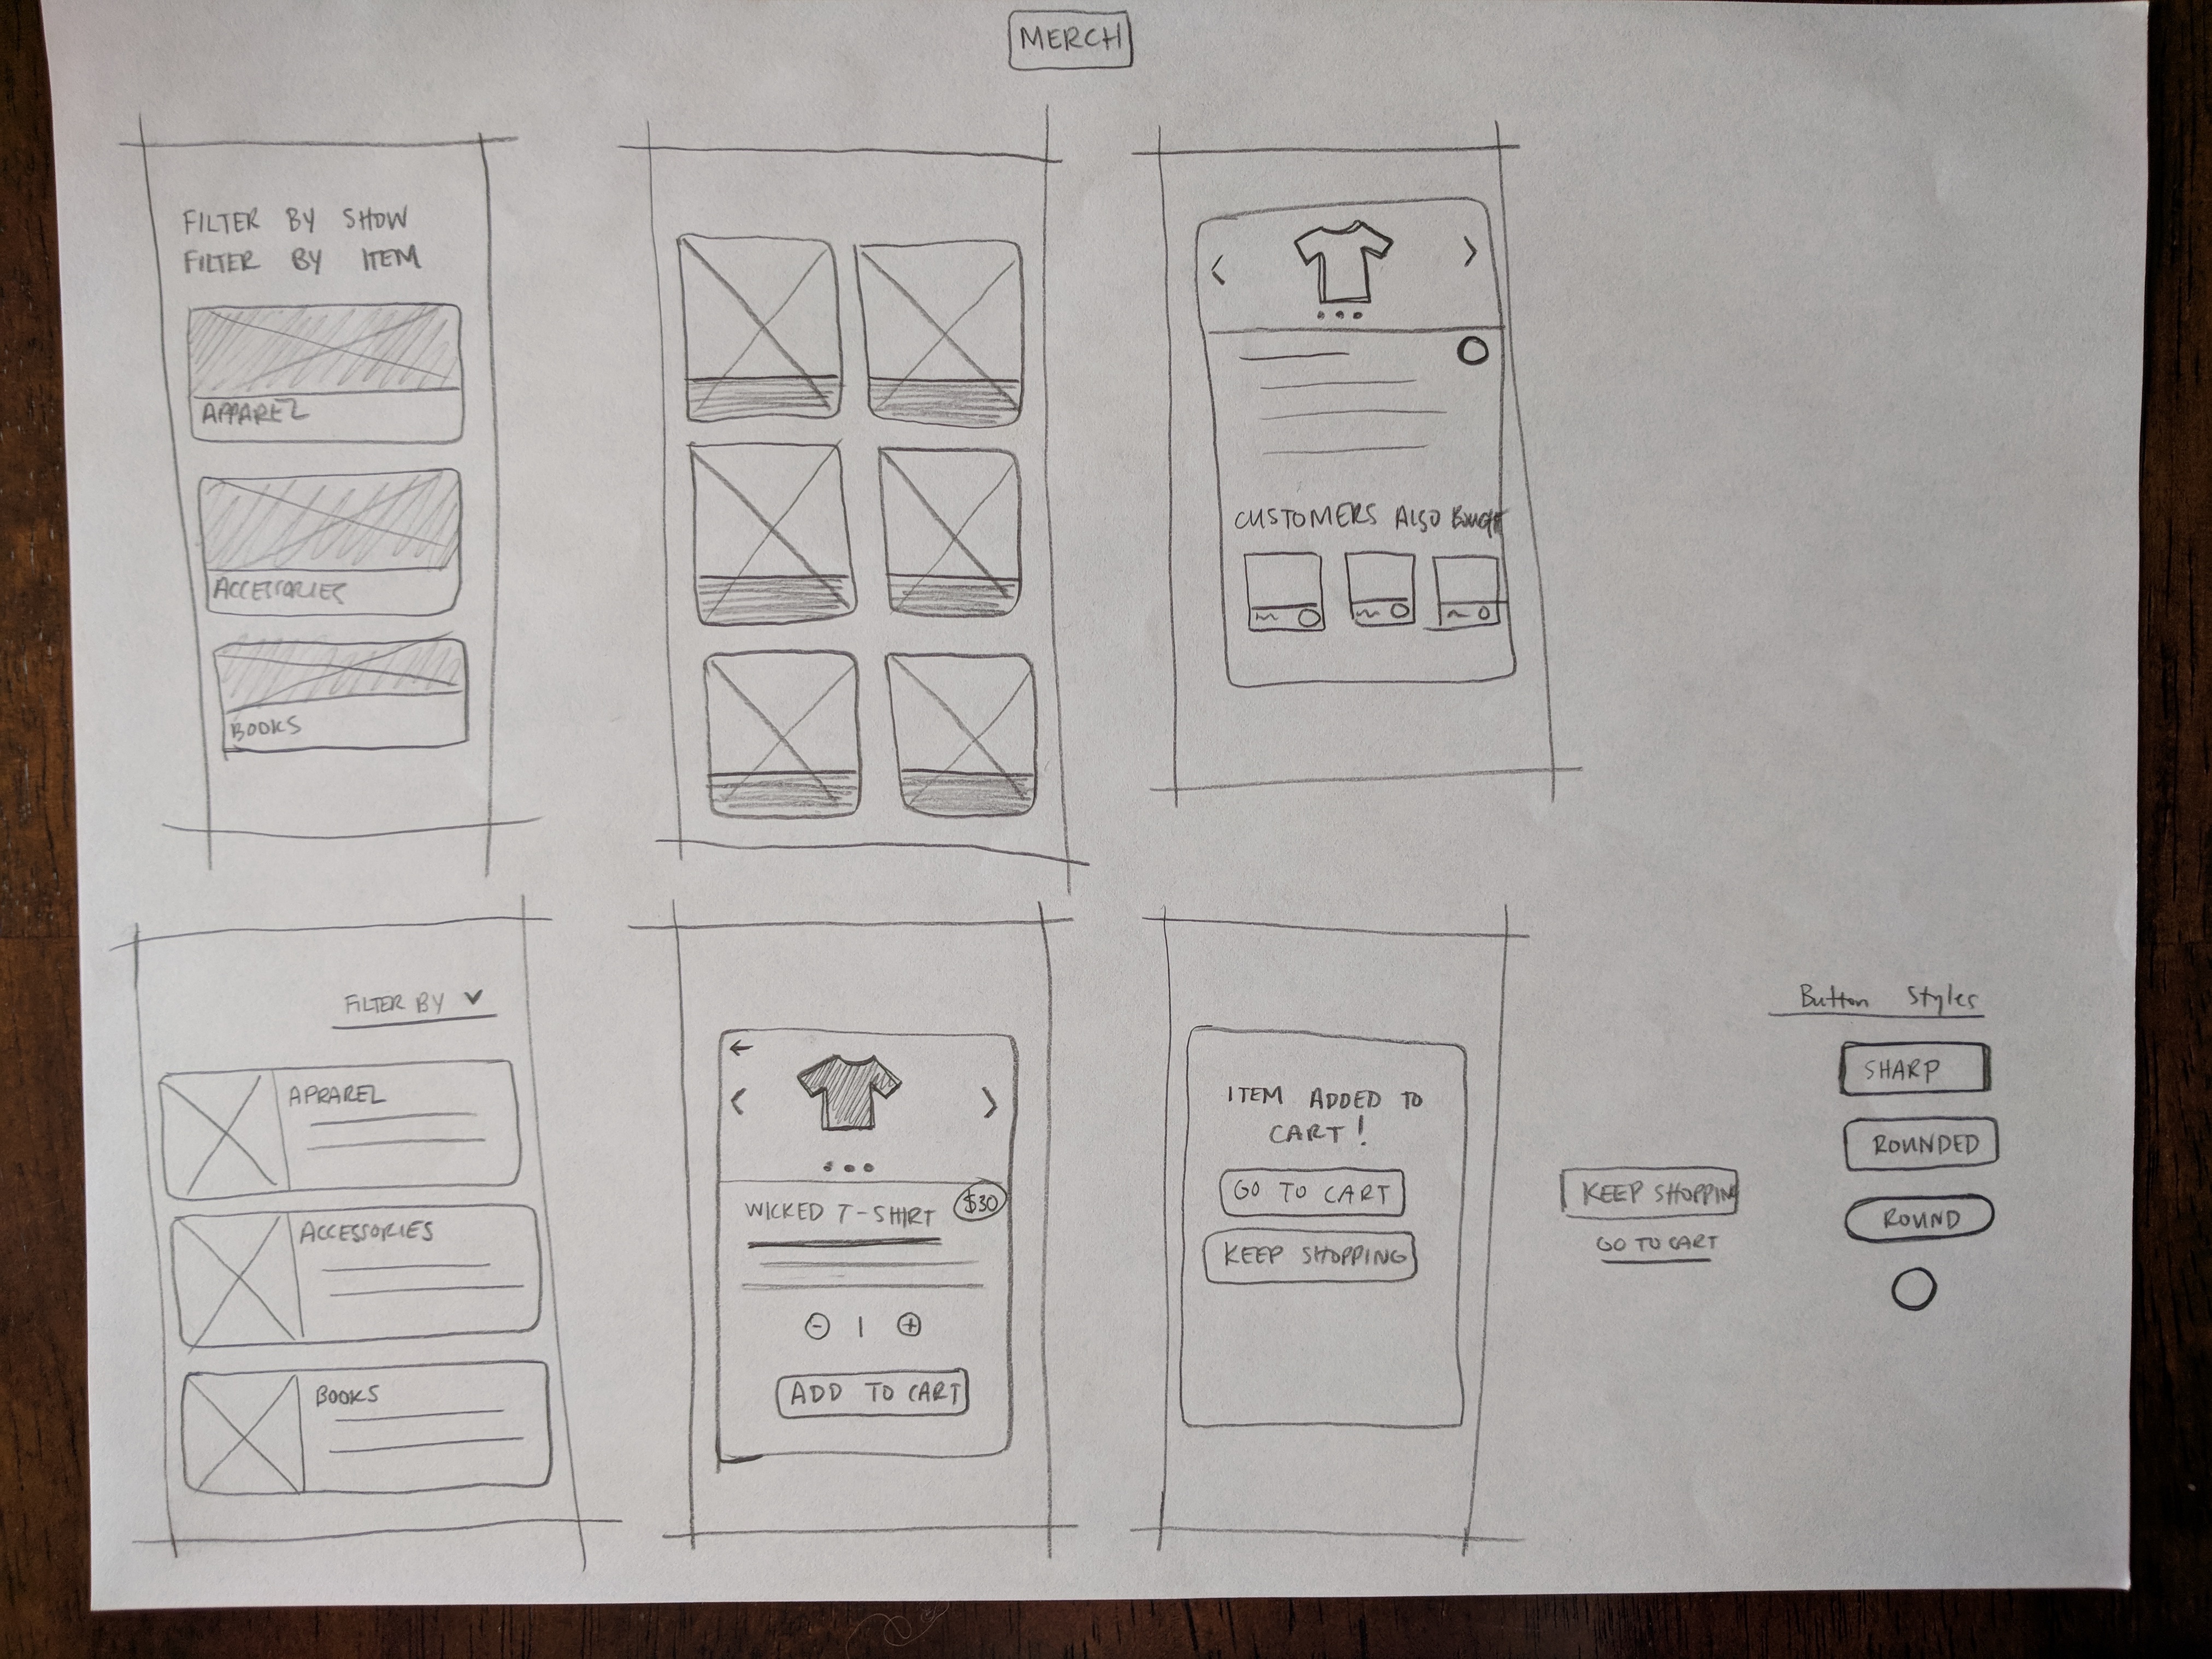 MERCH
FILTER BY SHOW
FILTER BY ITEM
APPAREL
ACCESSORIES
BOOKS
CUSTOMERS ALSO BOUGHT
FILTER BY
APPAREL
ACCESSORIES
BOOKS
WICKED T-SHIRT
$30
- 1 +
ADD TO CART
ITEM ADDED TO
CART!
GO TO CART
KEEP SHOPPING
KEEP SHOPPING
GO TO CART
Button Styles
SHARP
ROUNDED
ROUND